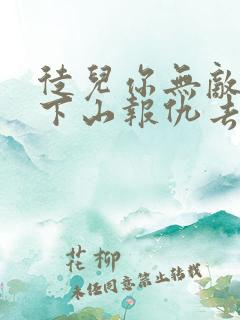 徒兒你無敵
下山報仇去
花柳
未经同意禁止转载